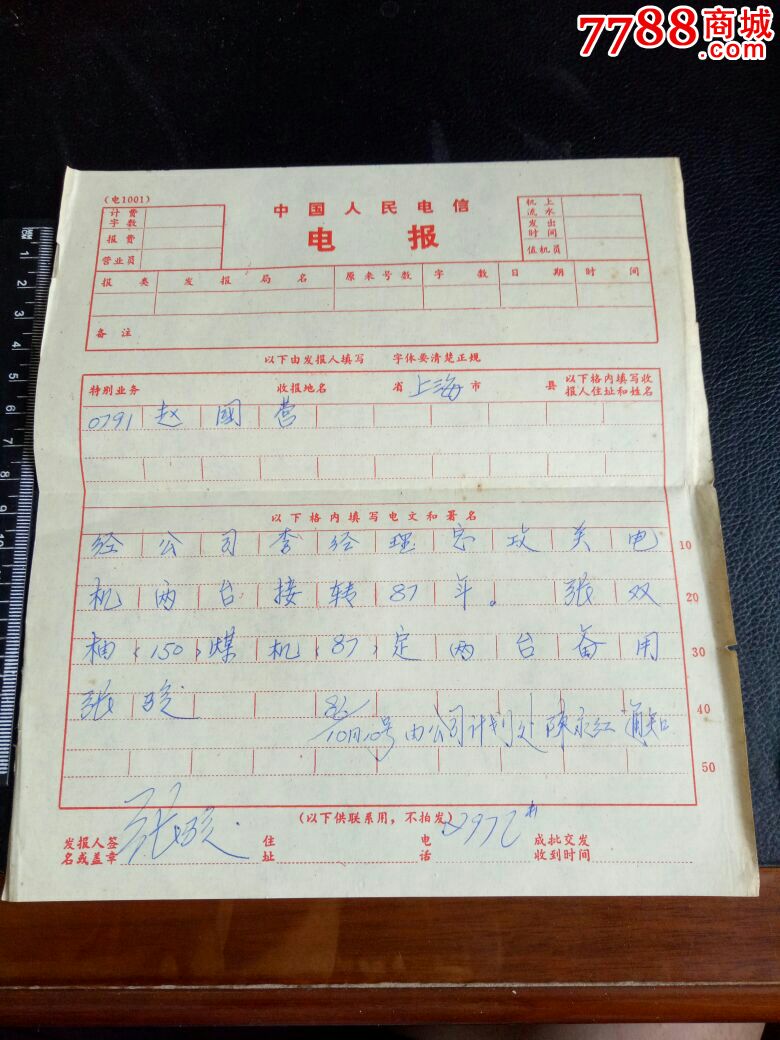 7788商城
.com
(电1001)
计费字数
报费
营业员
中国人民电信
电报
机上流水
发出时间
值机员
报类 发报局名 原来号数 字数 日期 时间
备注
以下由发报人填写 字体要清楚正规
特别业务 收报地名 省 上海 市 县 以下格内填写收报人住址和姓名
0791 赵國营
以下格内填写电文和署名
经公司李经理总攻关电 10
机两台接转87年。张双 20
柚(150)煤机(87)定两台备用 30
张骏 40
86/10月10号由公司计划处陈永红通知
50
(以下供联系用，不拍发)
发报人签名或盖章 张骏 住址 电话 成批交发收到时间
0 1 2 3 4 5 6 7 8 9 10